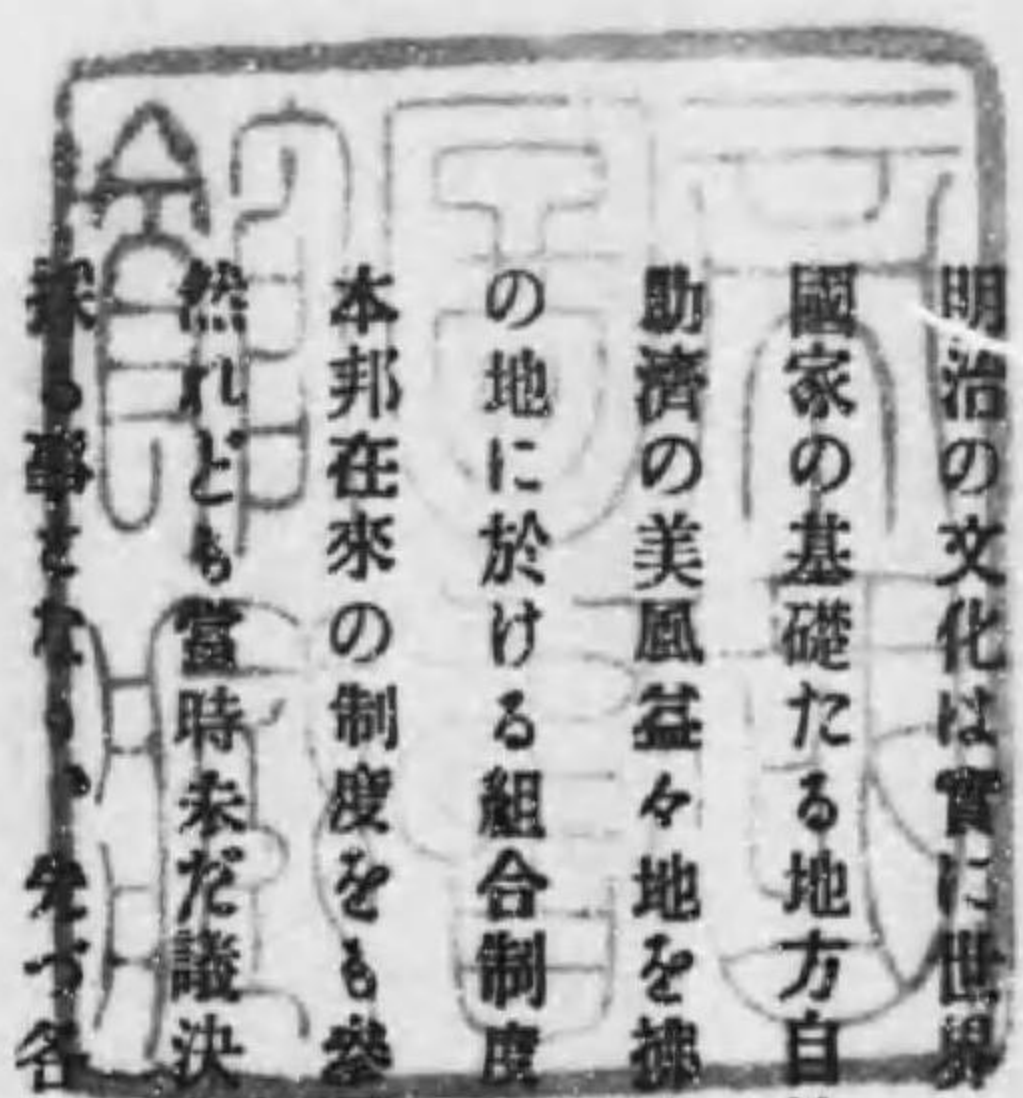 明治の文化は實に世界
國家の基礎たる地方自
助濟の美風益々地を拂
の地に於ける組合制度
本邦在來の制度をも參
然れども當時未だ議決
採る事をなり、先づ各